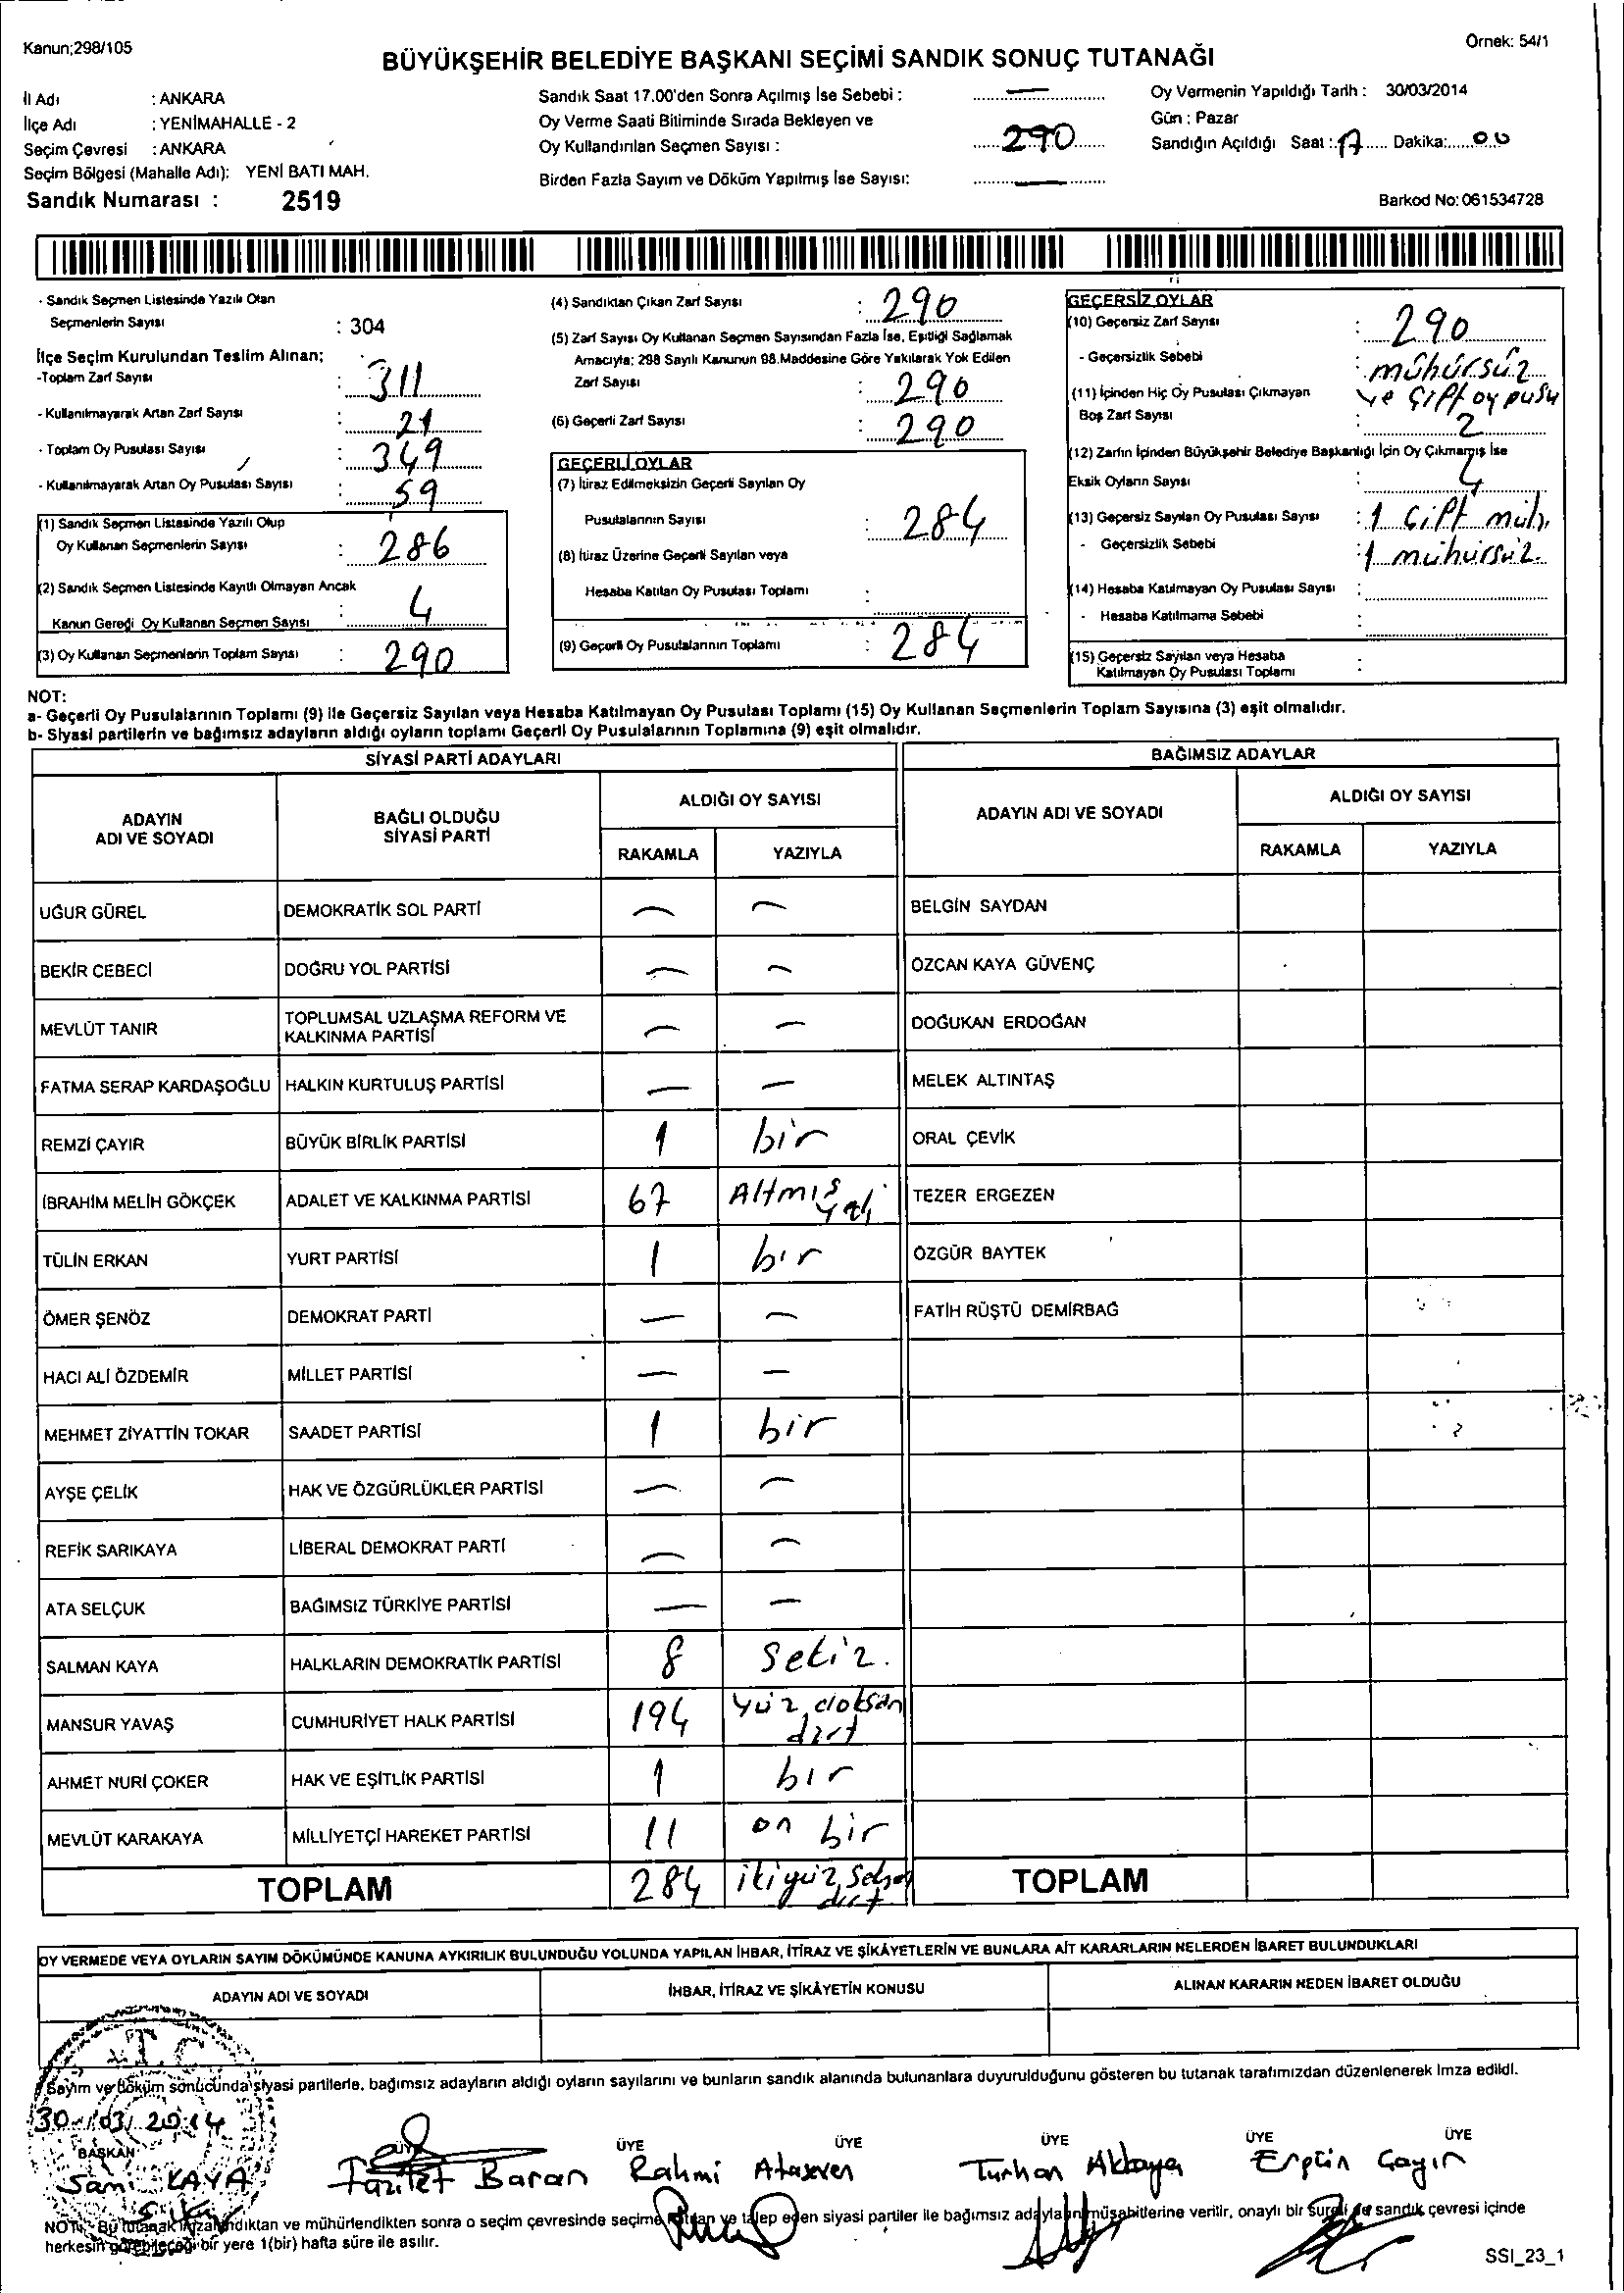 Kanun;298/105
Örnek: 54/1
BÜYÜKŞEHİR BELEDİYE BAŞKANI SEÇİMİ SANDIK SONUÇ TUTANAĞI
İl Adı : ANKARA
İlçe Adı : YENİMAHALLE - 2
Seçim Çevresi : ANKARA
Seçim Bölgesi (Mahalle Adı): YENİ BATI MAH.
Sandık Numarası : 2519
Sandık Saat 17.00'den Sonra Açılmış İse Sebebi : —
Oy Verme Saati Bitiminde Sırada Bekleyen ve
Oy Kullandırılan Seçmen Sayısı : 290
Birden Fazla Sayım ve Döküm Yapılmış İse Sayısı: —
Oy Vermenin Yapıldığı Tarih : 30/03/2014
Gün : Pazar
Sandığın Açıldığı Saat : 17 Dakika: 00
Barkod No: 061534728
- Sandık Seçmen Listesinde Yazılı Olan
Seçmenlerin Sayısı : 304
İlçe Seçim Kurulundan Teslim Alınan;
-Toplam Zarf Sayısı : 311
- Kullanılmayarak Artan Zarf Sayısı : 21
- Toplam Oy Pusulası Sayısı : 349
- Kullanılmayarak Artan Oy Pusulası Sayısı : 59
(1) Sandık Seçmen Listesinde Yazılı Olup
Oy Kullanan Seçmenlerin Sayısı : 286
(2) Sandık Seçmen Listesinde Kayıtlı Olmayan Ancak
Kanun Gereği Oy Kullanan Seçmen Sayısı : 4
(3) Oy Kullanan Seçmenlerin Toplam Sayısı : 290
(4) Sandıktan Çıkan Zarf Sayısı : 290
(5) Zarf Sayısı Oy Kullanan Seçmen Sayısından Fazla İse, Eşitliği Sağlamak
Amacıyla; 298 Sayılı Kanunun 98.Maddesine Göre Yakılarak Yok Edilen
Zarf Sayısı : 290
(6) Geçerli Zarf Sayısı : 290
GEÇERLİ OYLAR
(7) İtiraz Edilmeksizin Geçerli Sayılan Oy
Pusulalarının Sayısı : 284
(8) İtiraz Üzerine Geçerli Sayılan veya
Hesaba Katılan Oy Pusulası Toplamı :
(9) Geçerli Oy Pusulalarının Toplamı : 284
GEÇERSİZ OYLAR
(10) Geçersiz Zarf Sayısı : 290
- Geçersizlik Sebebi : mühürsüz
ve çift oy pusu
(11) İçinden Hiç Oy Pusulası Çıkmayan
Boş Zarf Sayısı : 2
(12) Zarfın İçinden Büyükşehir Belediye Başkanlığı İçin Oy Çıkmamış İse
Eksik Oyların Sayısı : 4
(13) Geçersiz Sayılan Oy Pusulası Sayısı : 1 Çift müh.
- Geçersizlik Sebebi : 1 mühürsüz.
(14) Hesaba Katılmayan Oy Pusulası Sayısı :
- Hesaba Katılmama Sebebi :
(15) Geçersiz Sayılan veya Hesaba
Katılmayan Oy Pusulası Toplamı :
NOT:
a- Geçerli Oy Pusulalarının Toplamı (9) ile Geçersiz Sayılan veya Hesaba Katılmayan Oy Pusulası Toplamı (15) Oy Kullanan Seçmenlerin Toplam Sayısına (3) eşit olmalıdır.
b- Siyasi partilerin ve bağımsız adayların aldığı oyların toplamı Geçerli Oy Pusulalarının Toplamına (9) eşit olmalıdır.
SİYASİ PARTİ ADAYLARI
ADAYIN
ADI VE SOYADI
BAĞLI OLDUĞU
SİYASİ PARTİ
ALDIĞI OY SAYISI
RAKAMLA YAZIYLA
UĞUR GÜREL DEMOKRATİK SOL PARTİ — —
BEKİR CEBECİ DOĞRU YOL PARTİSİ — —
MEVLÜT TANIR TOPLUMSAL UZLAŞMA REFORM VE
KALKINMA PARTİSİ — —
FATMA SERAP KARDAŞOĞLU HALKIN KURTULUŞ PARTİSİ — —
REMZİ ÇAYIR BÜYÜK BİRLİK PARTİSİ 1 bir
İBRAHİM MELİH GÖKÇEK ADALET VE KALKINMA PARTİSİ 67 Altmış
yedi
TÜLİN ERKAN YURT PARTİSİ 1 bir
ÖMER ŞENÖZ DEMOKRAT PARTİ — —
HACI ALİ ÖZDEMİR MİLLET PARTİSİ — —
MEHMET ZİYATTİN TOKAR SAADET PARTİSİ 1 bir
AYŞE ÇELİK HAK VE ÖZGÜRLÜKLER PARTİSİ — —
REFİK SARIKAYA LİBERAL DEMOKRAT PARTİ — —
ATA SELÇUK BAĞIMSIZ TÜRKİYE PARTİSİ — —
SALMAN KAYA HALKLARIN DEMOKRATİK PARTİSİ 8 Sekiz.
MANSUR YAVAŞ CUMHURİYET HALK PARTİSİ 194 yüz doksan
dört
AHMET NURİ ÇOKER HAK VE EŞİTLİK PARTİSİ 1 bir
MEVLÜT KARAKAYA MİLLİYETÇİ HAREKET PARTİSİ 11 on bir
TOPLAM 284 ikiyüz seksen
dört
BAĞIMSIZ ADAYLAR
ADAYIN ADI VE SOYADI
ALDIĞI OY SAYISI
RAKAMLA YAZIYLA
BELGİN SAYDAN
ÖZCAN KAYA GÜVENÇ
DOĞUKAN ERDOĞAN
MELEK ALTINTAŞ
ORAL ÇEVİK
TEZER ERGEZEN
ÖZGÜR BAYTEK
FATİH RÜŞTÜ DEMİRBAĞ
TOPLAM
OY VERMEDE VEYA OYLARIN SAYIM DÖKÜMÜNDE KANUNA AYKIRILIK BULUNDUĞU YOLUNDA YAPILAN İHBAR, İTİRAZ VE ŞİKÂYETLERİN VE BUNLARA AİT KARARLARIN NELERDEN İBARET BULUNDUKLARI
ADAYIN ADI VE SOYADI İHBAR, İTİRAZ VE ŞİKÂYETİN KONUSU ALINAN KARARIN NEDEN İBARET OLDUĞU
T.C
Sayım ve döküm sonucunda siyasi partilerle, bağımsız adayların aldığı oyların sayılarını ve bunların sandık alanında bulunanlara duyurulduğunu gösteren bu tutanak tarafımızdan düzenlenerek imza edildi.
30/03/2014
BAŞKAN ÜYE ÜYE ÜYE ÜYE ÜYE ÜYE
Sami KAYA Fazilet Baran Rahmi Ataseven Turhan Akkaya Ergün Çayır
NOT: Bu tutanak imzalandıktan ve mühürlendikten sonra o seçim çevresinde seçime katılan ve talep eden siyasi partiler ile bağımsız adayların müşahitlerine verilir, onaylı bir sureti de sandık çevresi içinde
herkesin görebileceği bir yere 1(bir) hafta süre ile asılır.
SSI_23_1